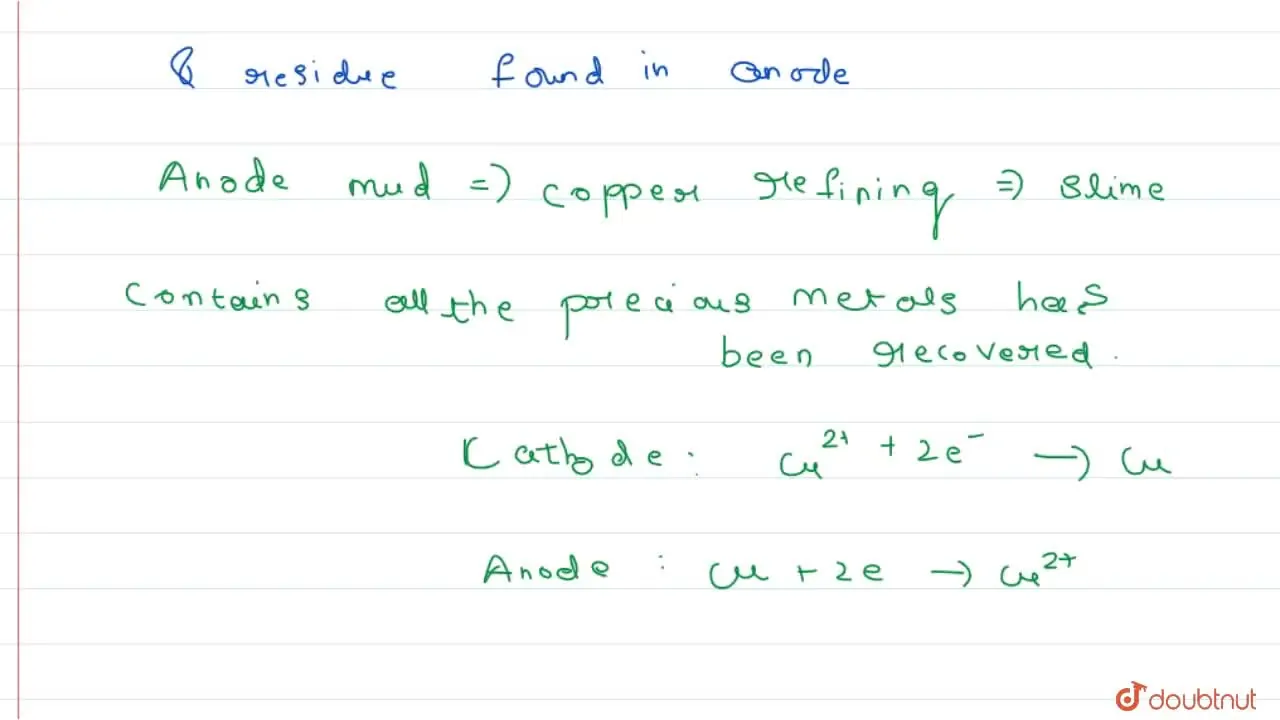 & residue found in anode
Anode mud => copper refining => slime
Contains all the precious metals has
been recovered.
Cathode: Cu²⁺ + 2e⁻ → Cu
Anode : Cu + 2e → Cu²⁺
doubtnut